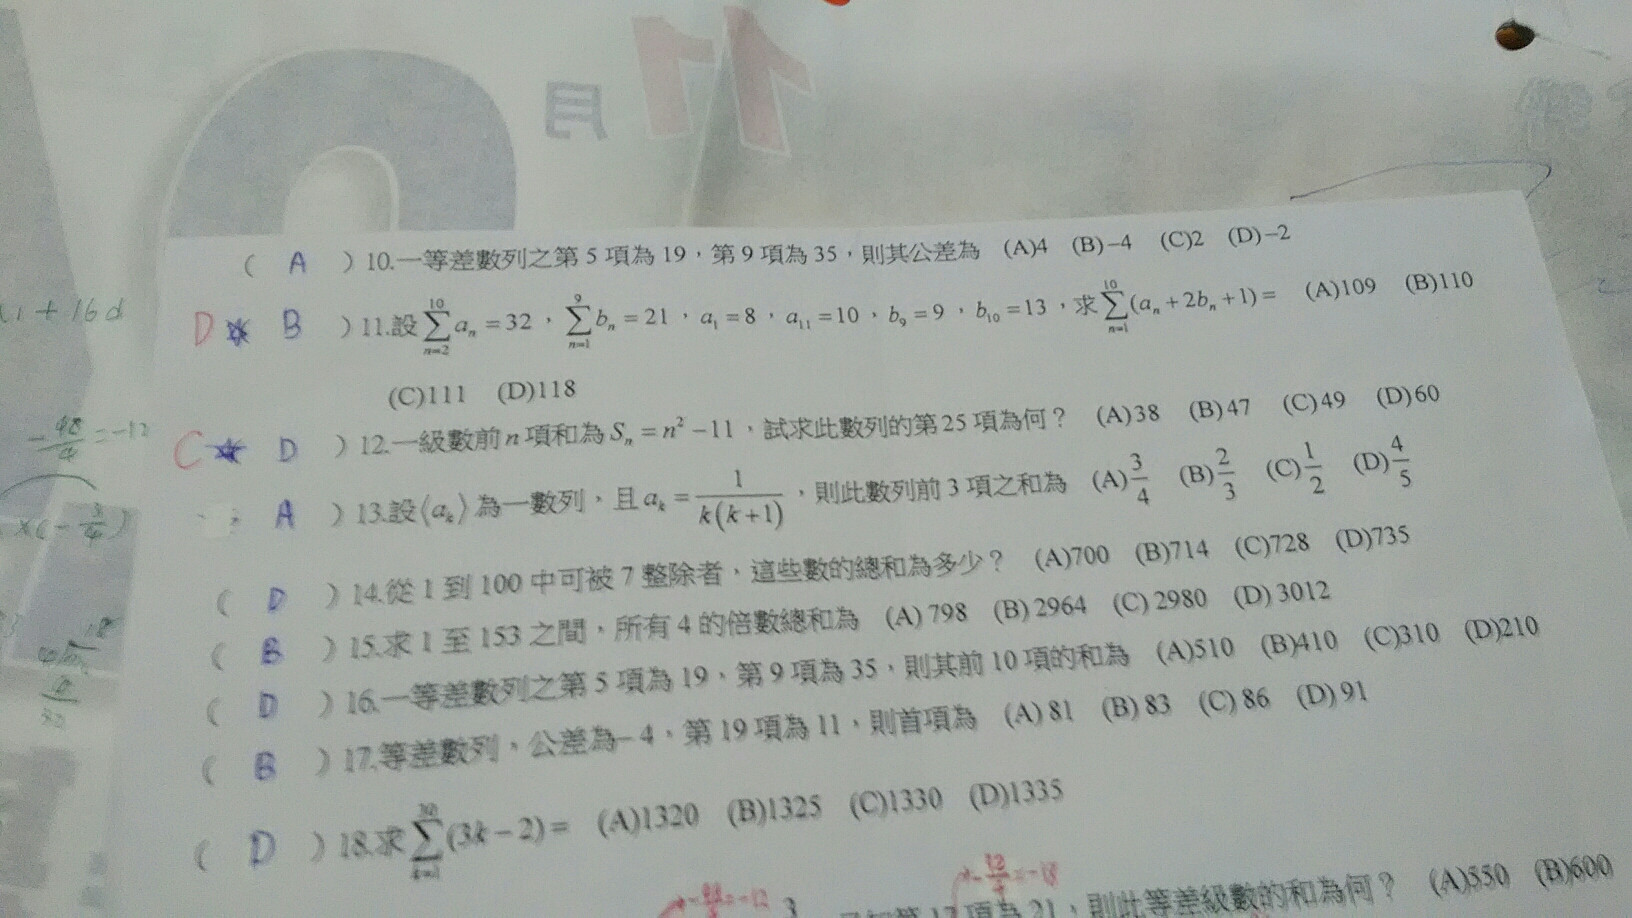 11月
( A ) 10.一等差數列之第 5 項為 19，第 9 項為 35，則其公差為 (A)4 (B)−4 (C)2 (D)−2
a1 + 16d
D☆ B ) 11.設 \sum_{n=2}^{10} a_n = 32，\sum_{n=1}^{9} b_n = 21，a_1 = 8，a_{11} = 10，b_9 = 9，b_{10} = 13，求 \sum_{n=1}^{10} (a_n + 2b_n + 1) = (A)109 (B)110
(C)111 (D)118
-\frac{48}{4} = -12
C☆ D ) 12.一級數前 n 項和為 S_n = n^2 − 11，試求此數列的第 25 項為何？ (A)38 (B)47 (C)49 (D)60
x(-\frac{3}{4})
A ) 13.設⟨a_k⟩為一數列，且 a_k = \frac{1}{k(k+1)}，則此數列前 3 項之和為 (A)\frac{3}{4} (B)\frac{2}{3} (C)\frac{1}{2} (D)\frac{4}{5}
( D ) 14.從 1 到 100 中可被 7 整除者，這些數的總和為多少？ (A)700 (B)714 (C)728 (D)735
( B ) 15.求 1 至 153 之間，所有 4 的倍數總和為 (A) 798 (B) 2964 (C) 2980 (D) 3012
( D ) 16.一等差數列之第 5 項為 19，第 9 項為 35，則其前 10 項的和為 (A)510 (B)410 (C)310 (D)210
( B ) 17.等差數列，公差為−4，第 19 項為 11，則首項為 (A) 81 (B) 83 (C) 86 (D) 91
( D ) 18.求 \sum_{k=1}^{30} (3k − 2) = (A)1320 (B)1325 (C)1330 (D)1335
= -12 3 = -18
項為 21，則此等差級數的和為何？ (A)550 (B)600